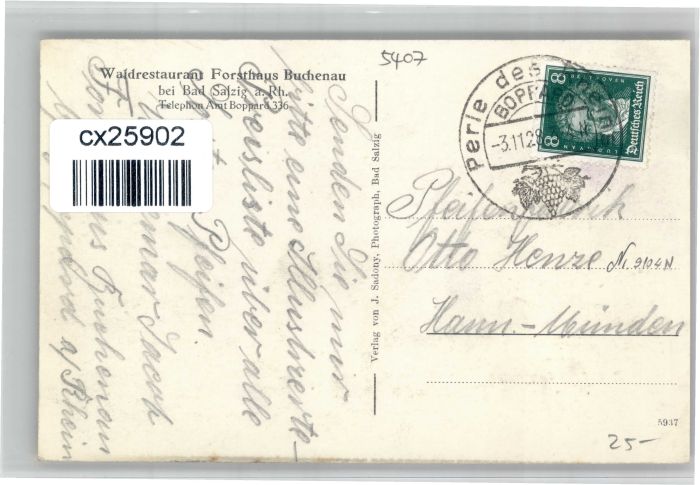 Waldrestaurant Forsthaus Buchenau
bei Bad Salzig a. Rh.
Telephon Amt Boppard 336
cx25902
5407
Senden Sie mir
bitte eine Illustrierte
Preisliste über alle
Pfeifen.
Jacob
Forsthaus Buchenau
Boppard a/Rhein
Verlag von J. Sadony, Photograph, Bad Salzig
Perle des Rheins
BOPPARD
-3.11.28
8 BEETHOVEN 8
LUDW. VAN
Deutsches Reich
Otto Henze Nr 9104 N
Hann.-Münden
5937
25-